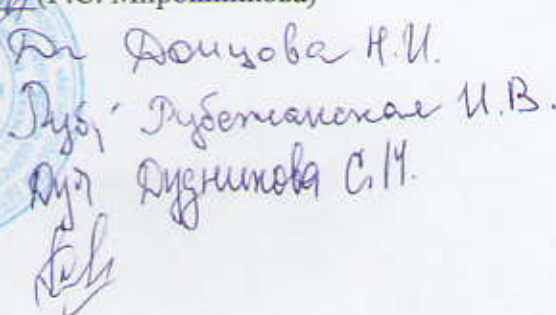 (Г.С. Мирошникова)
Донцова Н.И.
Руб, Рубежанская И.В.
Дуд Дудникова С.М.